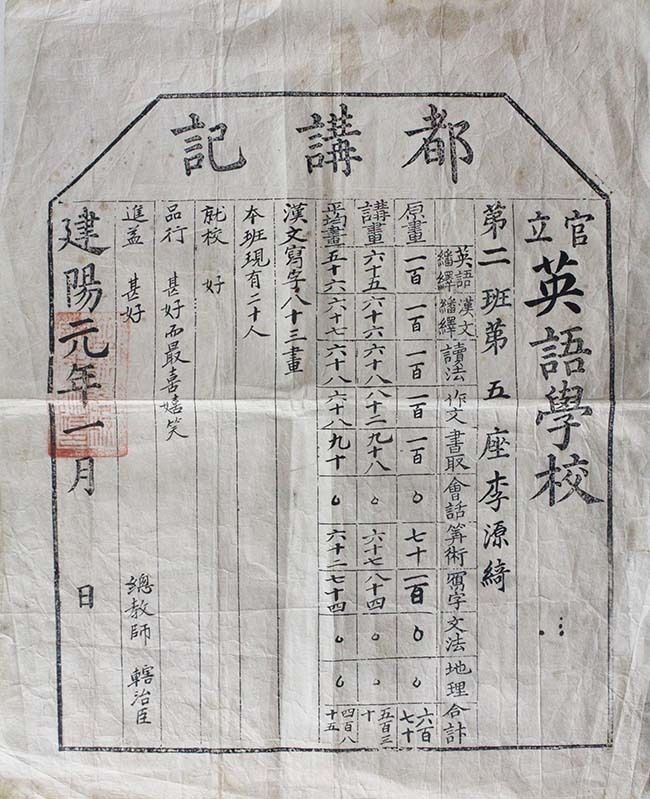 都講記
官立英語學校
第二班第五座李源綺
英語繙繹 漢文繙繹 讀法 作文 書取 會話 筭術 寫字 文法 地理 合計
原畫 一百 一百 一百 一百 一百 0 七十 一百 0 0 六百七十
講畫 六十五 六十六 六十八 八十二 九十八 0 六十七 八十四 0 0 五百三十
平均畫 五十六 六十七 六十八 六十八 九十 0 六十二 七十四 0 0 四百八十五
漢文寫字八十三畫
本班現有二十人
就校 好
品行 甚好而最喜嬉笑
進益 甚好
總教師 轄治臣
建陽元年一月 日